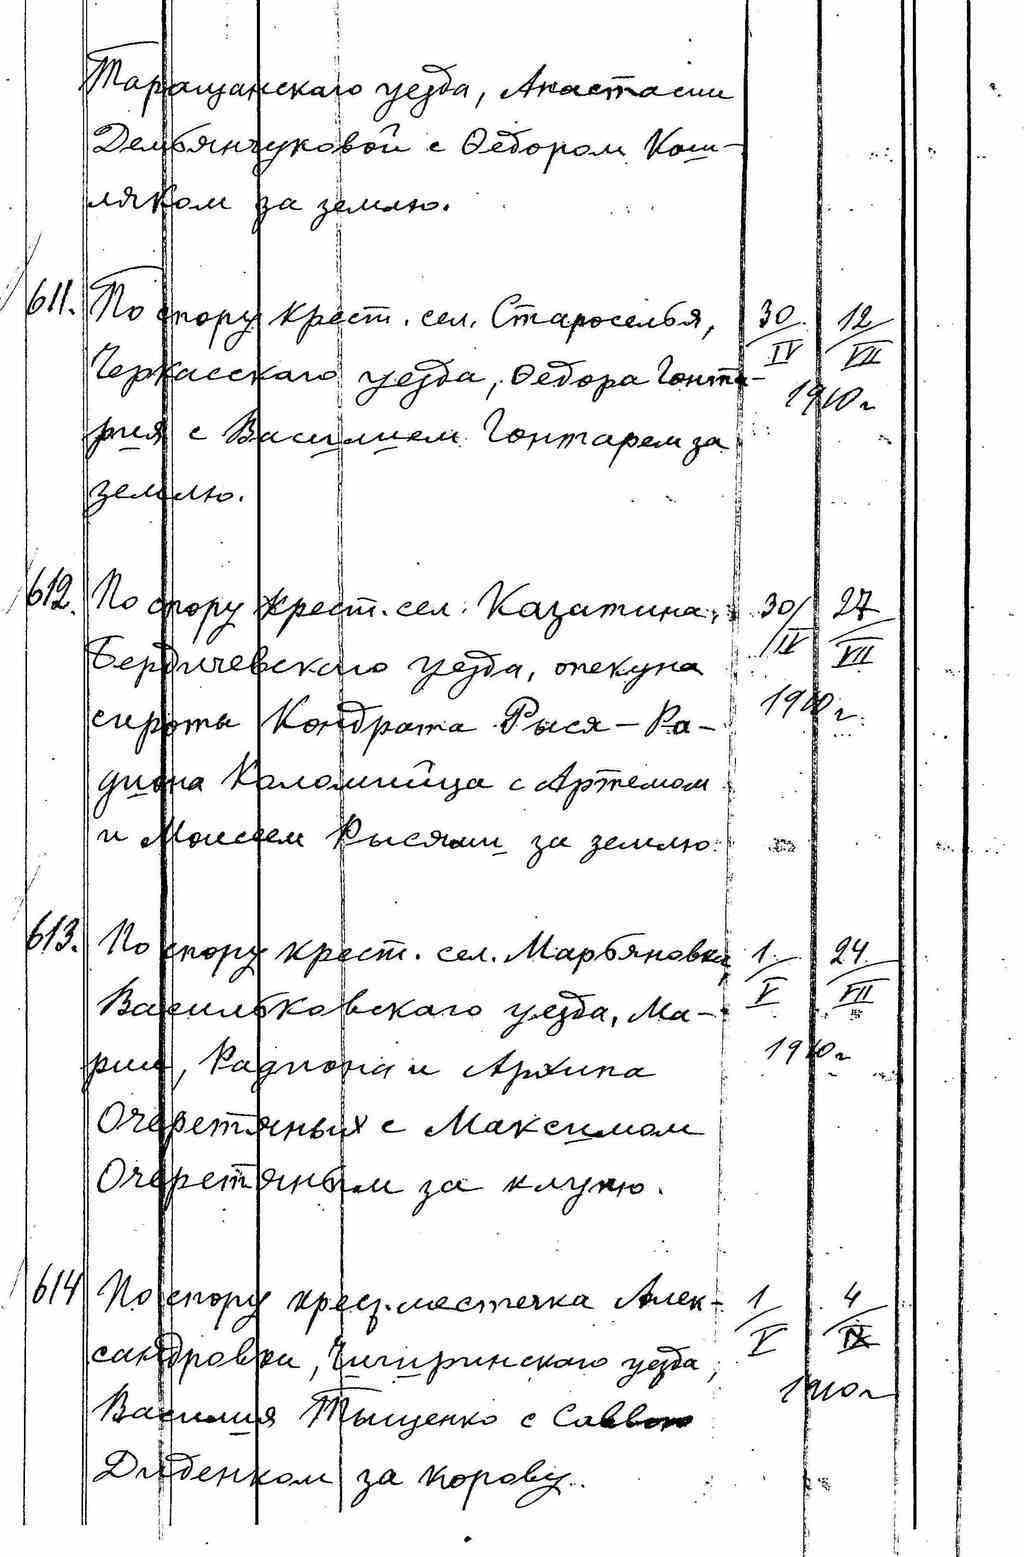 Таращанскаго уезда, Анастасии
Демьянчуковой с Ѳедором Кош-
ляком за землю.
611. По спору крест. сел. Староселья, 30/IV 12/VII
Черкасскаго уезда, Ѳедора Гонта- 1910 г
рия с Василием Гонтарем за
землю.
612. По спору крест. сел. Казатина, 30/IV 27/VII
Бердичевскаго уезда, опекуна
сироты Кондрата Рыся - Ра- 1910 г.
диона Коломийца с Артемом
и Моисеем Рысями за землю
613. По спору крест. сел. Марьяновки, 1/V 24/VII
Васильковскаго уезда, Ма-
рии, Радиона и Архипа 1910 г
Очеретяных с Максимом
Очеретяным за клуню.
614 По спору крест. местечка Алек- 1/V 4/IX
сандровки, Чигиринскаго уезда, 1910 г
Василия Тыщенко с Саввою
Диденком за корову.